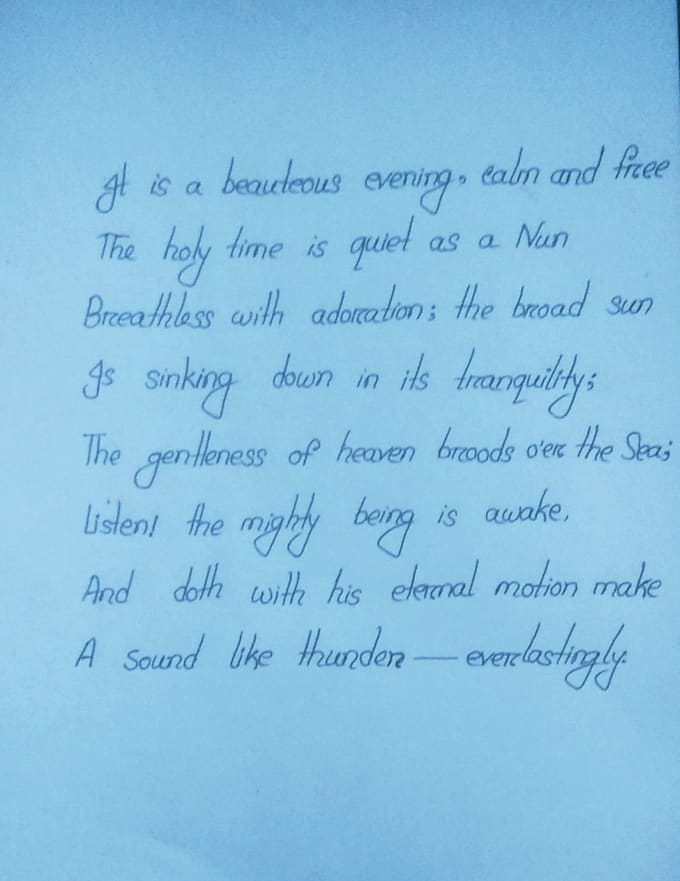 It is a beauteous evening, calm and free
The holy time is quiet as a Nun
Breathless with adoration; the broad sun
Is sinking down in its tranquility;
The gentleness of heaven broods o'er the Sea;
Listen! the mighty being is awake,
And doth with his eternal motion make
A sound like thunder — everlastingly.